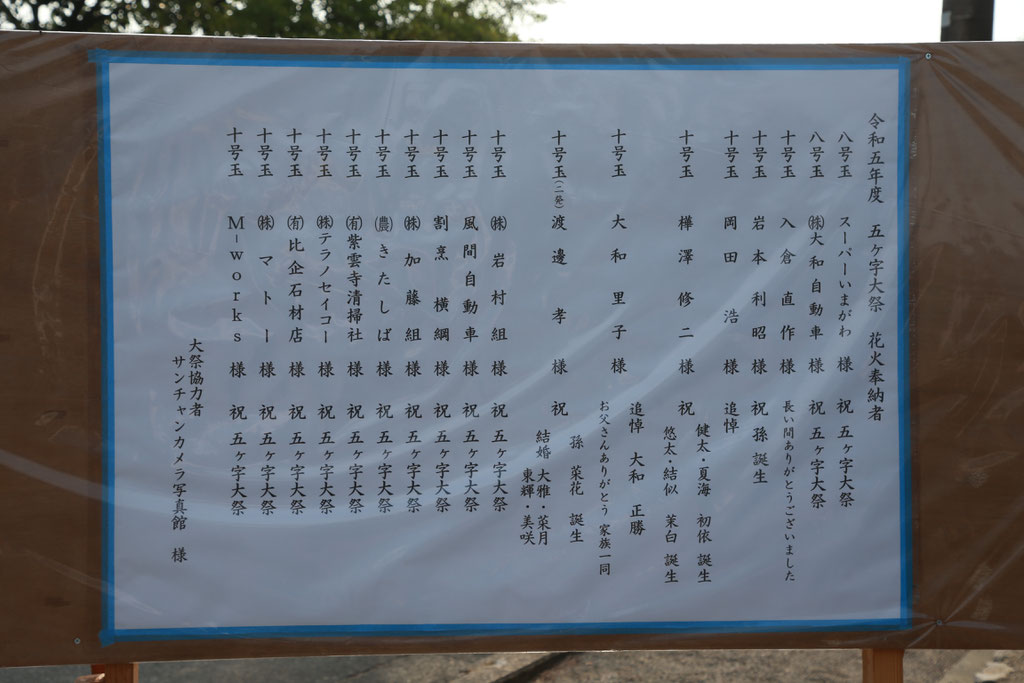 令和五年度 五ヶ字大祭 花火奉納者
八号玉 スーパーいまがわ 様 祝 五ヶ字大祭
八号玉 ㈱大和自動車 様 祝 五ヶ字大祭
十号玉 入倉直作 様 長い間ありがとうございました
十号玉 岩本利昭 様 祝 孫誕生
十号玉 岡田浩 様 追悼
十号玉 樺澤修二 様 祝 健太・夏海 初依 誕生
悠太・結似 茉白 誕生
十号玉 大和里子 様 追悼 大和 正勝
お父さんありがとう 家族一同
十号玉(二発) 渡邊孝 様 祝 孫 菜花 誕生
結婚 大雅・菜月
東輝・美咲
十号玉 ㈱岩村組 様 祝 五ヶ字大祭
十号玉 風間自動車 様 祝 五ヶ字大祭
十号玉 割烹 横綱 様 祝 五ヶ字大祭
十号玉 ㈱加藤組 様 祝 五ヶ字大祭
十号玉 (農)きたしば 様 祝 五ヶ字大祭
十号玉 ㈲紫雲寺清掃社 様 祝 五ヶ字大祭
十号玉 ㈱テラノセイコー 様 祝 五ヶ字大祭
十号玉 ㈲比企石材店 様 祝 五ヶ字大祭
十号玉 ㈱マトー 様 祝 五ヶ字大祭
十号玉 M-works 様 祝 五ヶ字大祭
大祭協力者
サンチャンカメラ写真館 様